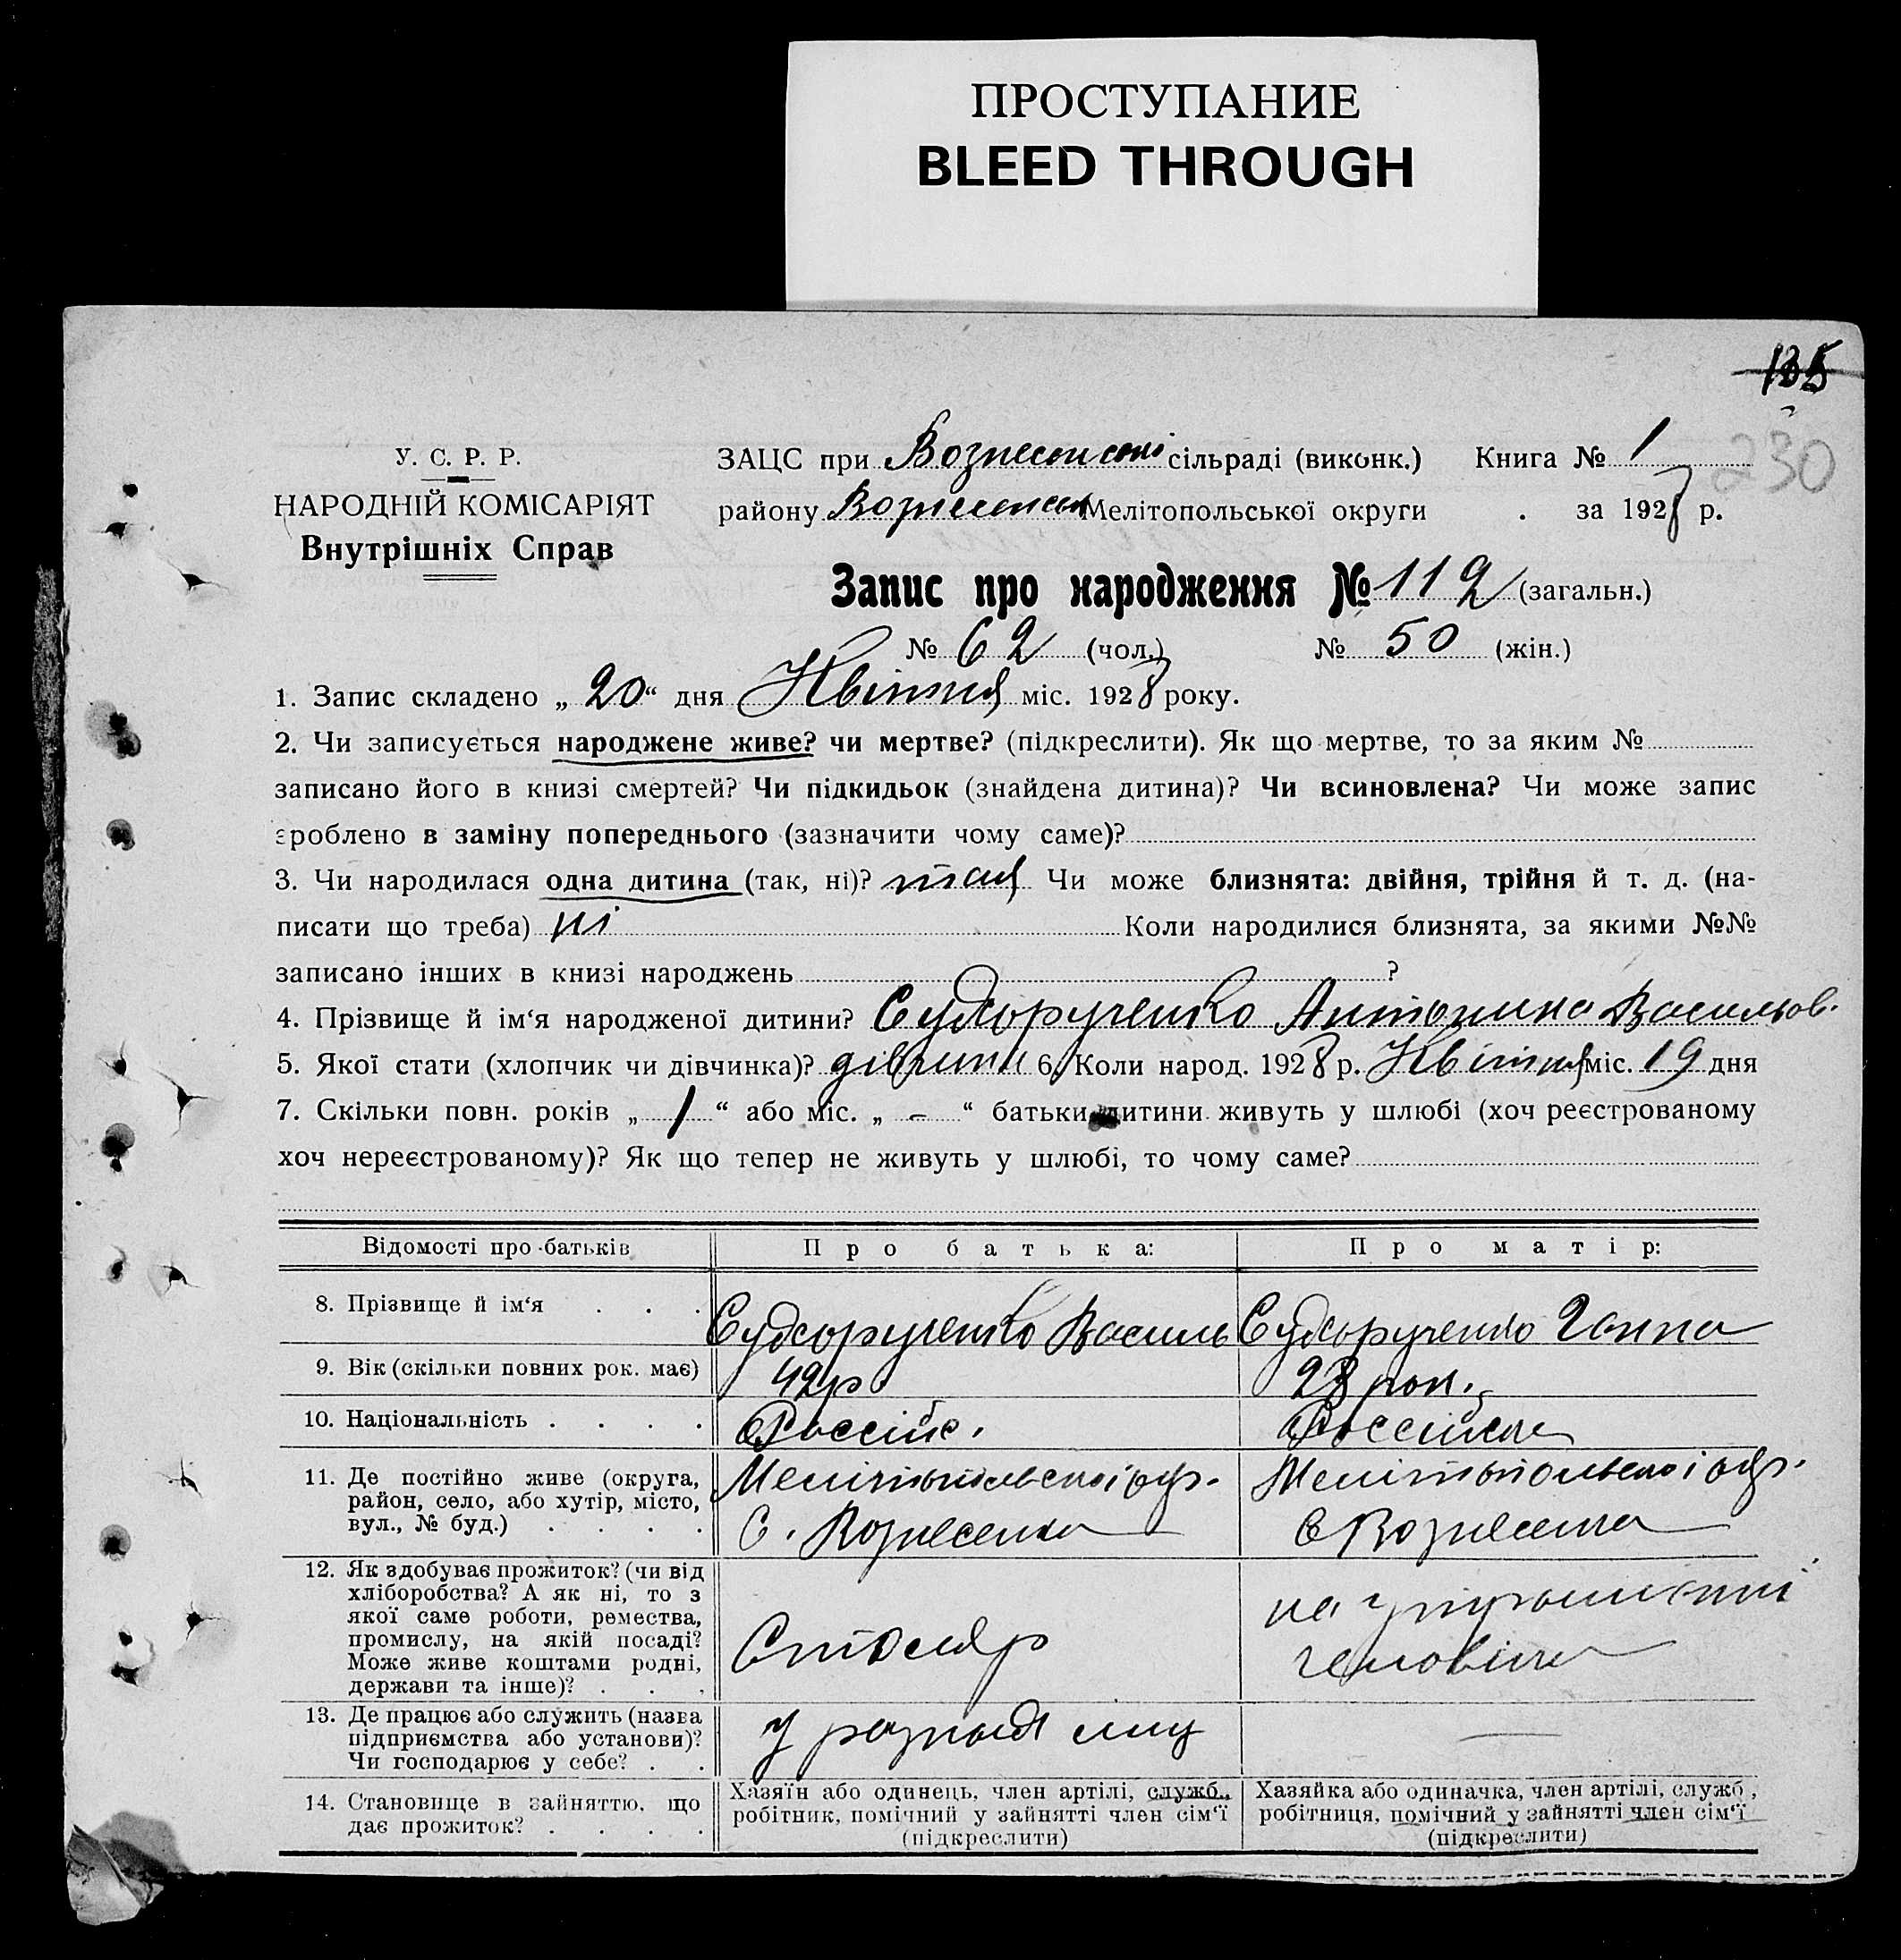 ПРОСТУПАНИЕ
BLEED THROUGH
135
230
У. С. Р. Р.
НАРОДНІЙ КОМІСАРІЯТ
Внутрішніх Справ
ЗАЦС при Вознесенські сільраді (виконк.) Книга № 1
району Вознесенськ Мелітопольської округи . за 1928 р.
Запис про народження № 112 (загальн.)
№ 62 (чол.) № 50 (жін.)
1. Запис складено „ 20 “ дня Квітня міс. 1928 року.
2. Чи записується народжене живе? чи мертве? (підкреслити). Як що мертве, то за яким №
записано його в книзі смертей? Чи підкидьок (знайдена дитина)? Чи всиновлена? Чи може запис
зроблено в заміну попереднього (зазначити чому саме)?
3. Чи народилася одна дитина (так, ні)? так Чи може близнята: двійня, трійня й т. д. (на-
писати що треба) ні Коли народилися близнята, за якими №№
записано інших в книзі народжень ?
4. Прізвище й ім‘я народженої дитини? Сухорученко Антонина Васильов.
5. Якої стати (хлопчик чи дівчинка)? дівчина 6. Коли народ. 1928 р. Квітня міс. 19 дня
7. Скільки повн. років „ 1 “ або міс. „ – “ батьки дитини живуть у шлюбі (хоч реєстрованому
хоч нереєстрованому)? Як що тепер не живуть у шлюбі, то чому саме?
Відомості про батьків Про батька: Про матір:
8. Прізвище й ім‘я . . . Сухорученко Василь Сухорученко Ганна
9. Вік (скільки повних рок. має) 42 р 28 рок.
10. Національність . . . .
11. Де постійно живе (округа,
район, село, або хутір, місто,
вул., № буд.) . . . .
Мелітопольської окр.
С. Вознесенка
Мелітопольської окр.
С Вознесенка
12. Як здобуває прожиток? (чи від
хліборобства? А як ні, то з
якої саме роботи, ремества,
промислу, на якій посаді?
Може живе коштами родні,
держави та інше)? . . .
Столяр
на утриманні
чоловіка
13. Де працює або служить (назва
підприємства або установи)?
Чи господарює у себе? . .
У разных лиц
—
14. Становище в зайняттю, що
дає прожиток? . . . .
Хазяїн або одинець, член артілі, служб.,
робітник, помічний у зайнятті член сім‘ї
(підкреслити)
Хазяйка або одиначка, член артілі, служб.,
робітниця, помічний у зайнятті член сім‘ї
(підкреслити)